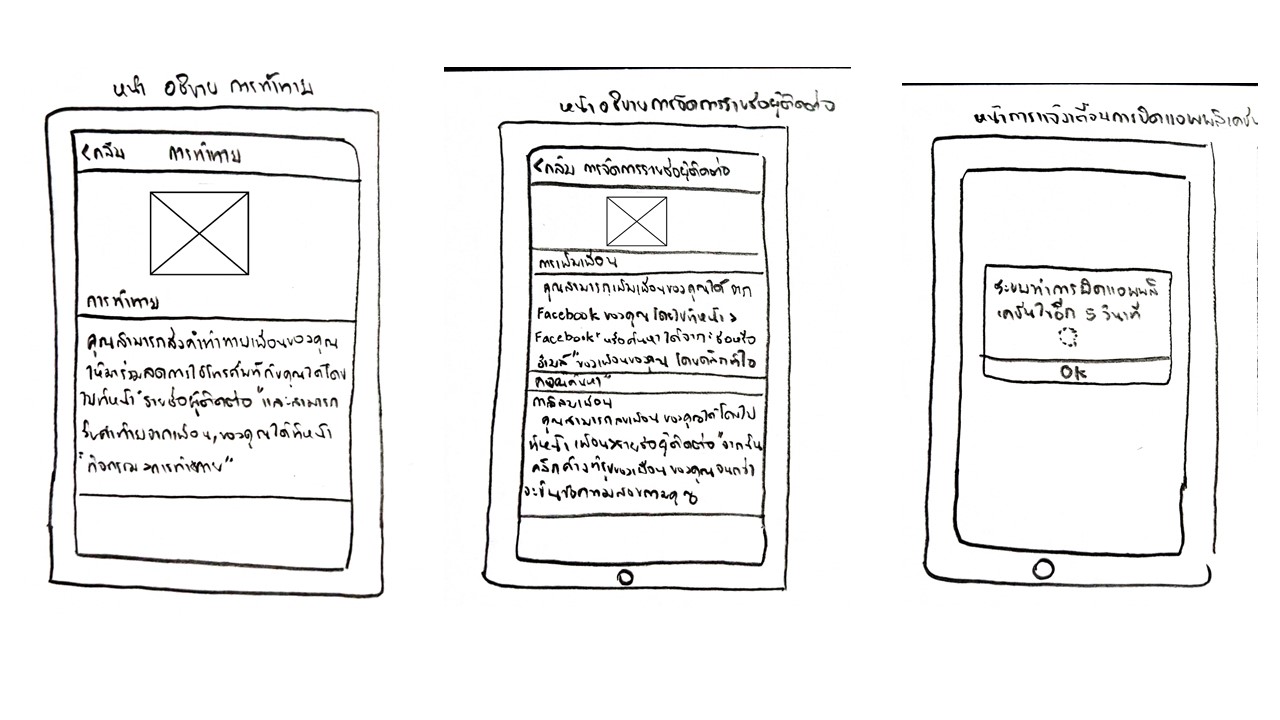 หน้า อธิบาย การท้าทาย
<กลับ การท้าทาย
การท้าทาย
คุณสามารถส่งคำท้าทายเพื่อนของคุณ
ให้มาร่วมลดการใช้โทรศัพท์กับคุณได้โดย
ไปที่หน้า "รายชื่อผู้ติดต่อ" และสามารถ
รับคำท้าทายจากเพื่อน,ของคุณได้ที่หน้า
"กิจกรรม>การท้าทาย"
หน้าอธิบายการจัดการรายชื่อผู้ติดต่อ
<กลับ การจัดการรายชื่อผู้ติดต่อ
การเพิ่มเพื่อน
คุณสามารถเพิ่มเพื่อนของคุณได้ จาก
Facebook ของคุณ โดยไปที่หน้า >
Facebook" หรือค้นหาได้จาก "ชื่อหรือ
อีเมล์" ของเพื่อนของคุณ โดยคลิกที่ไอ
คอนค้นหา"
การลบเพื่อน
คุณสามารถลบเพื่อน ของคุณได้โดยไป
ที่หน้า เพื่อน>รายชื่อผู้ติดต่อ" จากนั้น
คลิกค้างที่รูปของเพื่อน ของคุณจนกว่า
จะขึ้นข้อความสอบถามคุณ
หน้าการแจ้งเตือนการปิดแอพพลิเคชั่น
ระบบทำการปิดแอพพลิ
เคชั่นในอีก 5 วินาที
OK